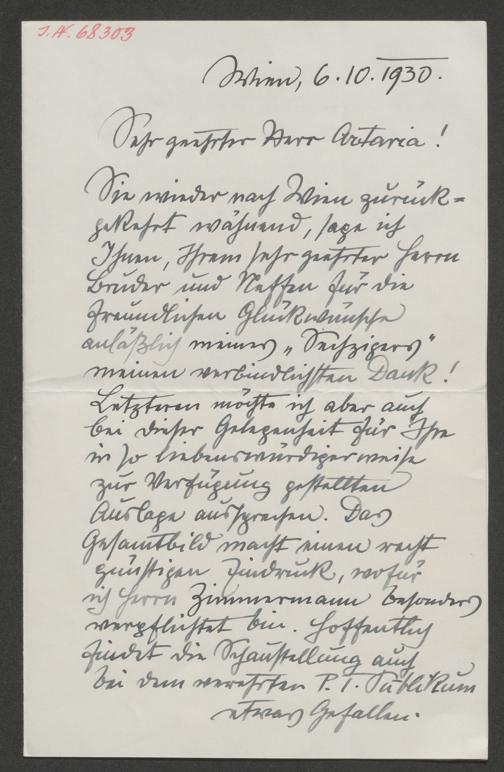 I.N. 68303
Wien, 6.10.1930.
Sehr geehrter Herr Artaria!
Sie wieder nach Wien zurück=
gekehrt wähnend, sage ich
Ihnen, Ihrem sehr geehrten Herrn
Bruder und Neffen für die
freundlichen Glückwünsche
anläßlich meines „Sechzigers"
meinen verbindlichsten Dank!
Letzteren möchte ich aber auch
bei dieser Gelegenheit für Ihre
in so liebenswürdigerweise
zur Verfügung gestellten
Auslage aussprechen. Das
Gesamtbild macht einen recht
günstigen Eindruck, wofür
ich Herrn Zimmermann besonders
verpflichtet bin. Hoffentlich
findet die Schaustellung auch
bei dem verehrten P. T. Publikum
etwas Gefallen.